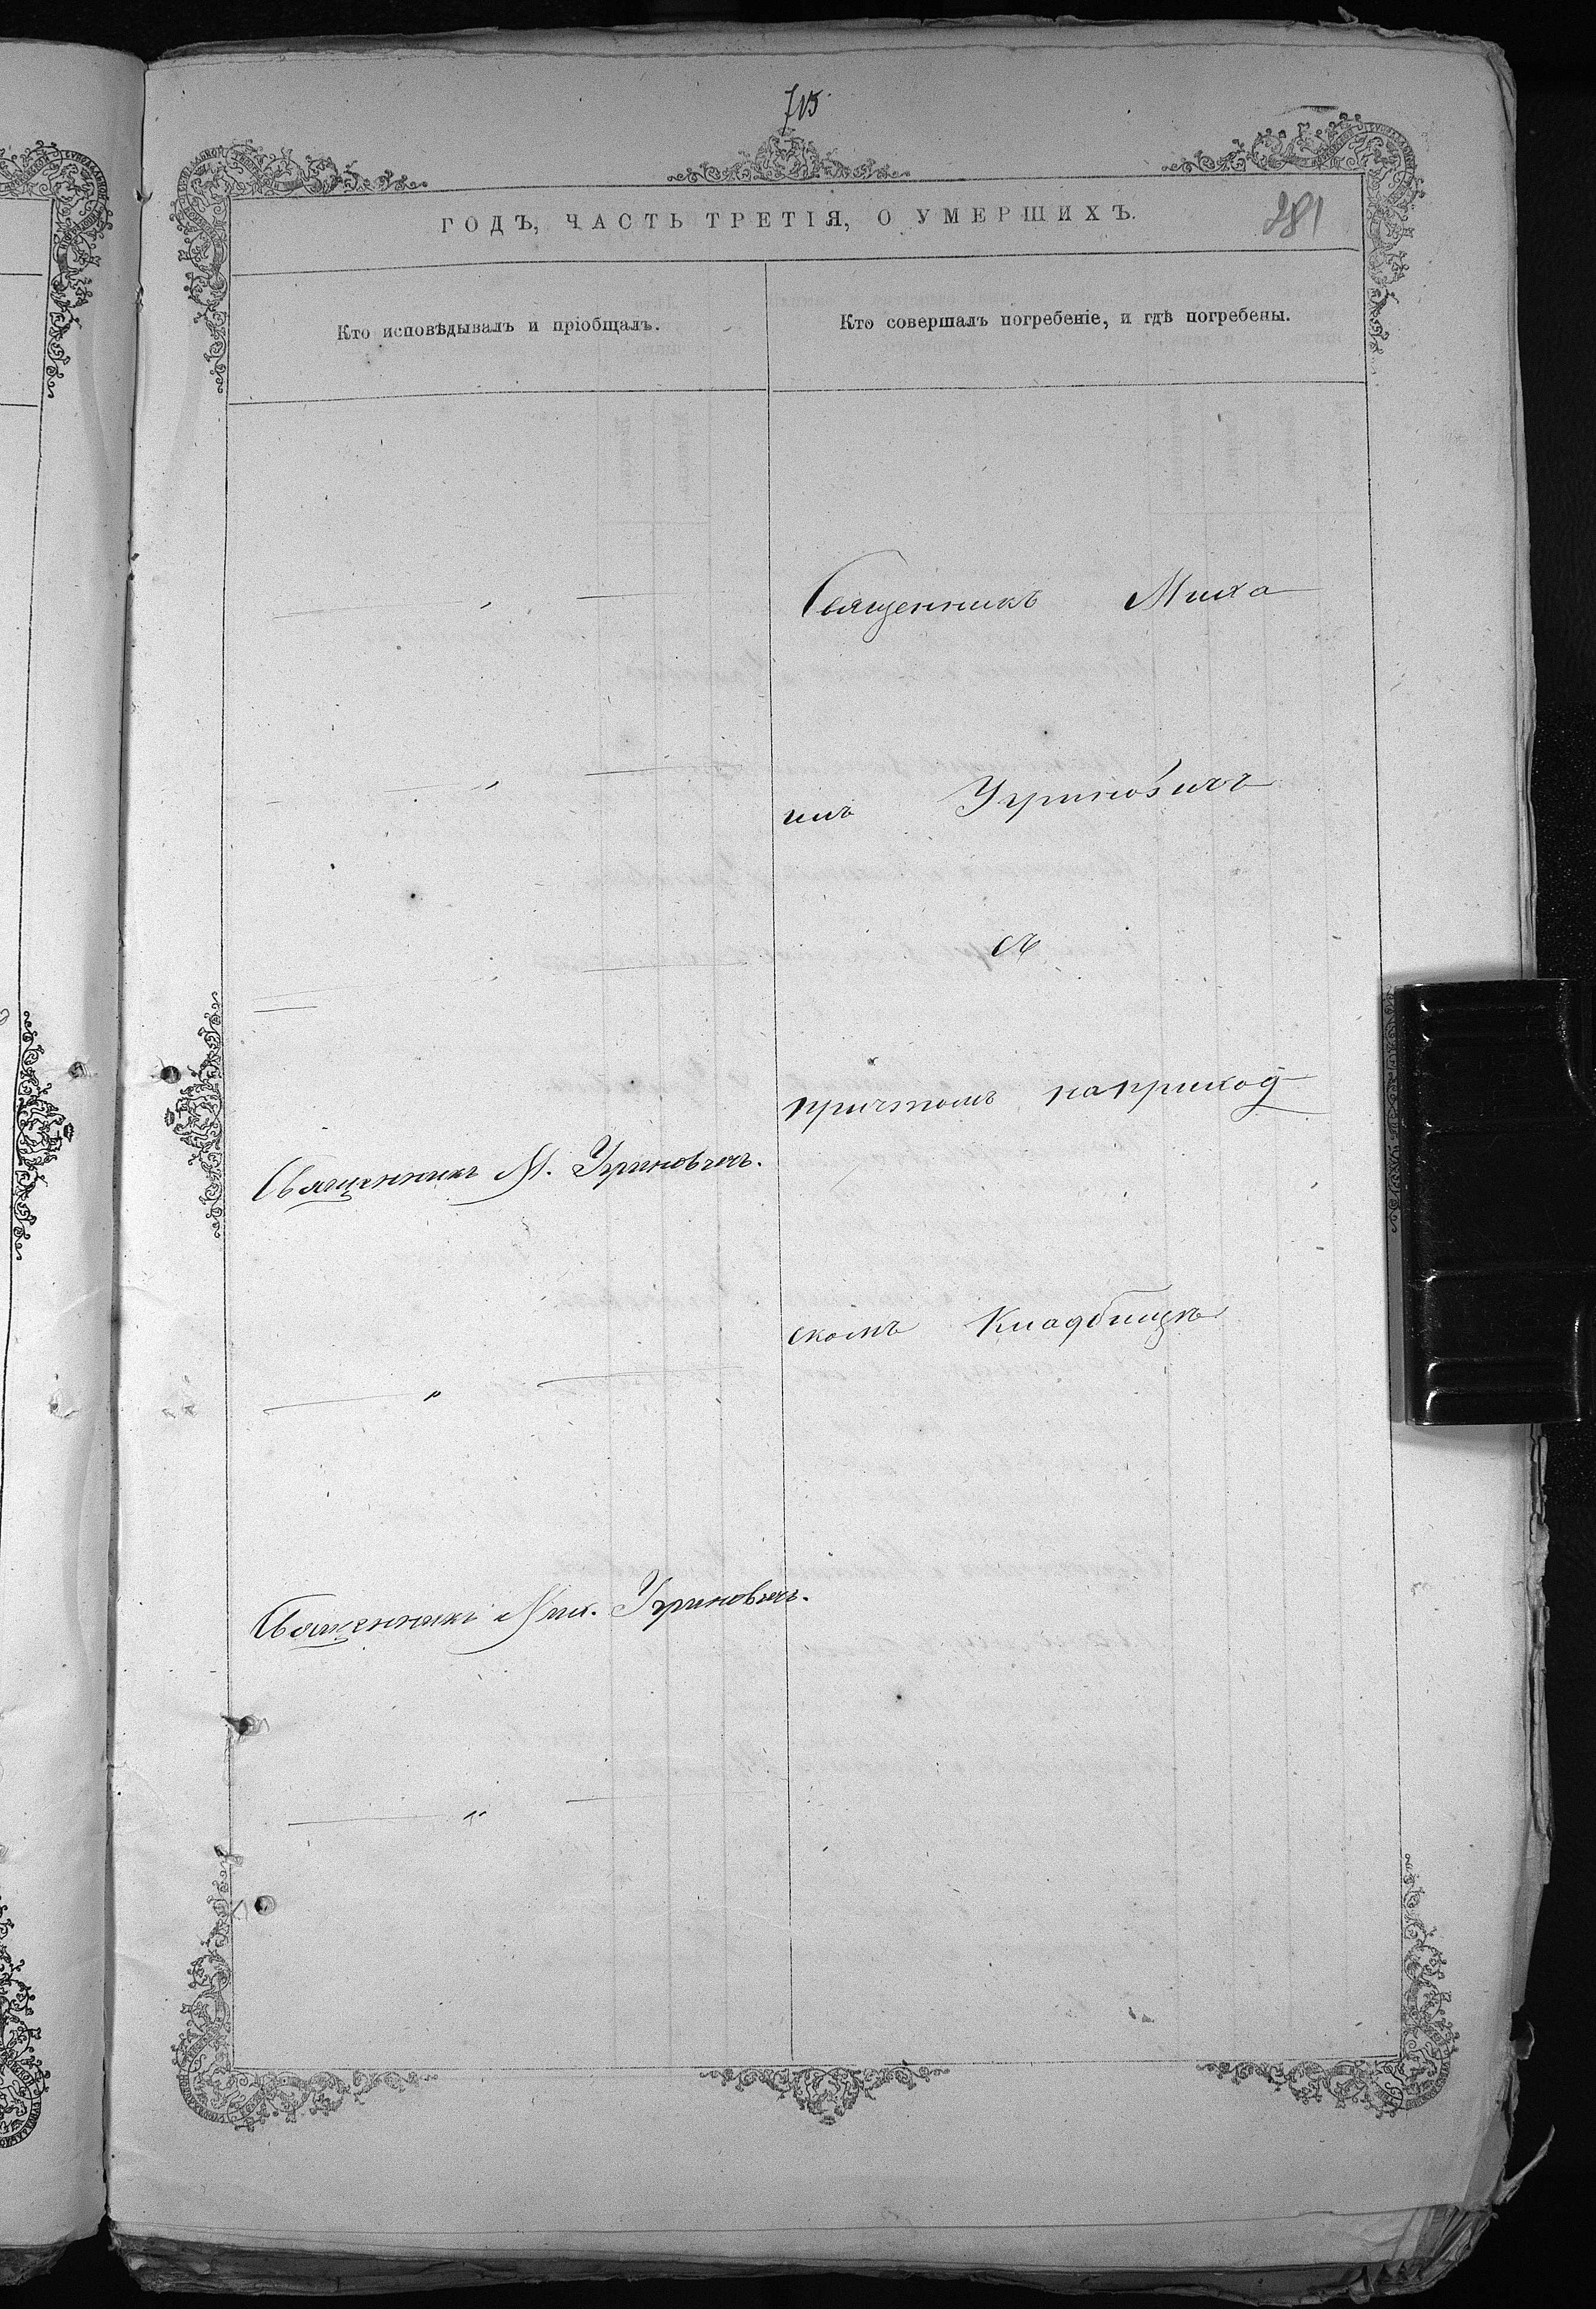 715
ГОДЪ, ЧАСТЬ ТРЕТІЯ, О УМЕРШИХЪ.
281
Кто исповѣдывалъ и пріобщалъ.
Кто совершалъ погребеніе, и гдѣ погребены.
Священникъ Миха
илъ Угриновичъ
съ
причтомъ на приход
Священникъ М. Угриновичъ.
скомъ Кладбищѣ
Священникъ Мих. Угриновичъ.